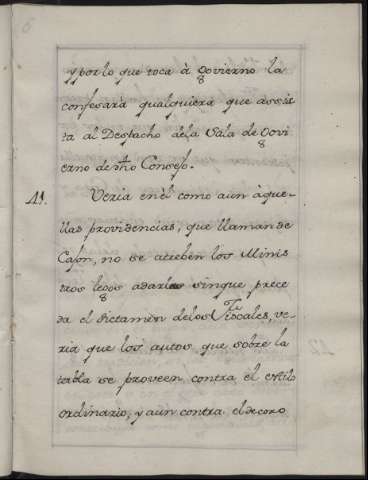 y por lo que toca à Govierno la
confesarà qualquiera que assis
ta al Despacho dela Sala de Govi
erno de dho Consejo.
41. Veria en èl como aùn àque-
llas providencias, que llaman de
Cajon, no se atreben los Minis
tros legos adarlas sinque prece
da el dictamèn delos Fiscales, ve-
ria que los autos que sobre la
tabla se proveen, contra el estilo
ordinario, y aùn contra el decoro